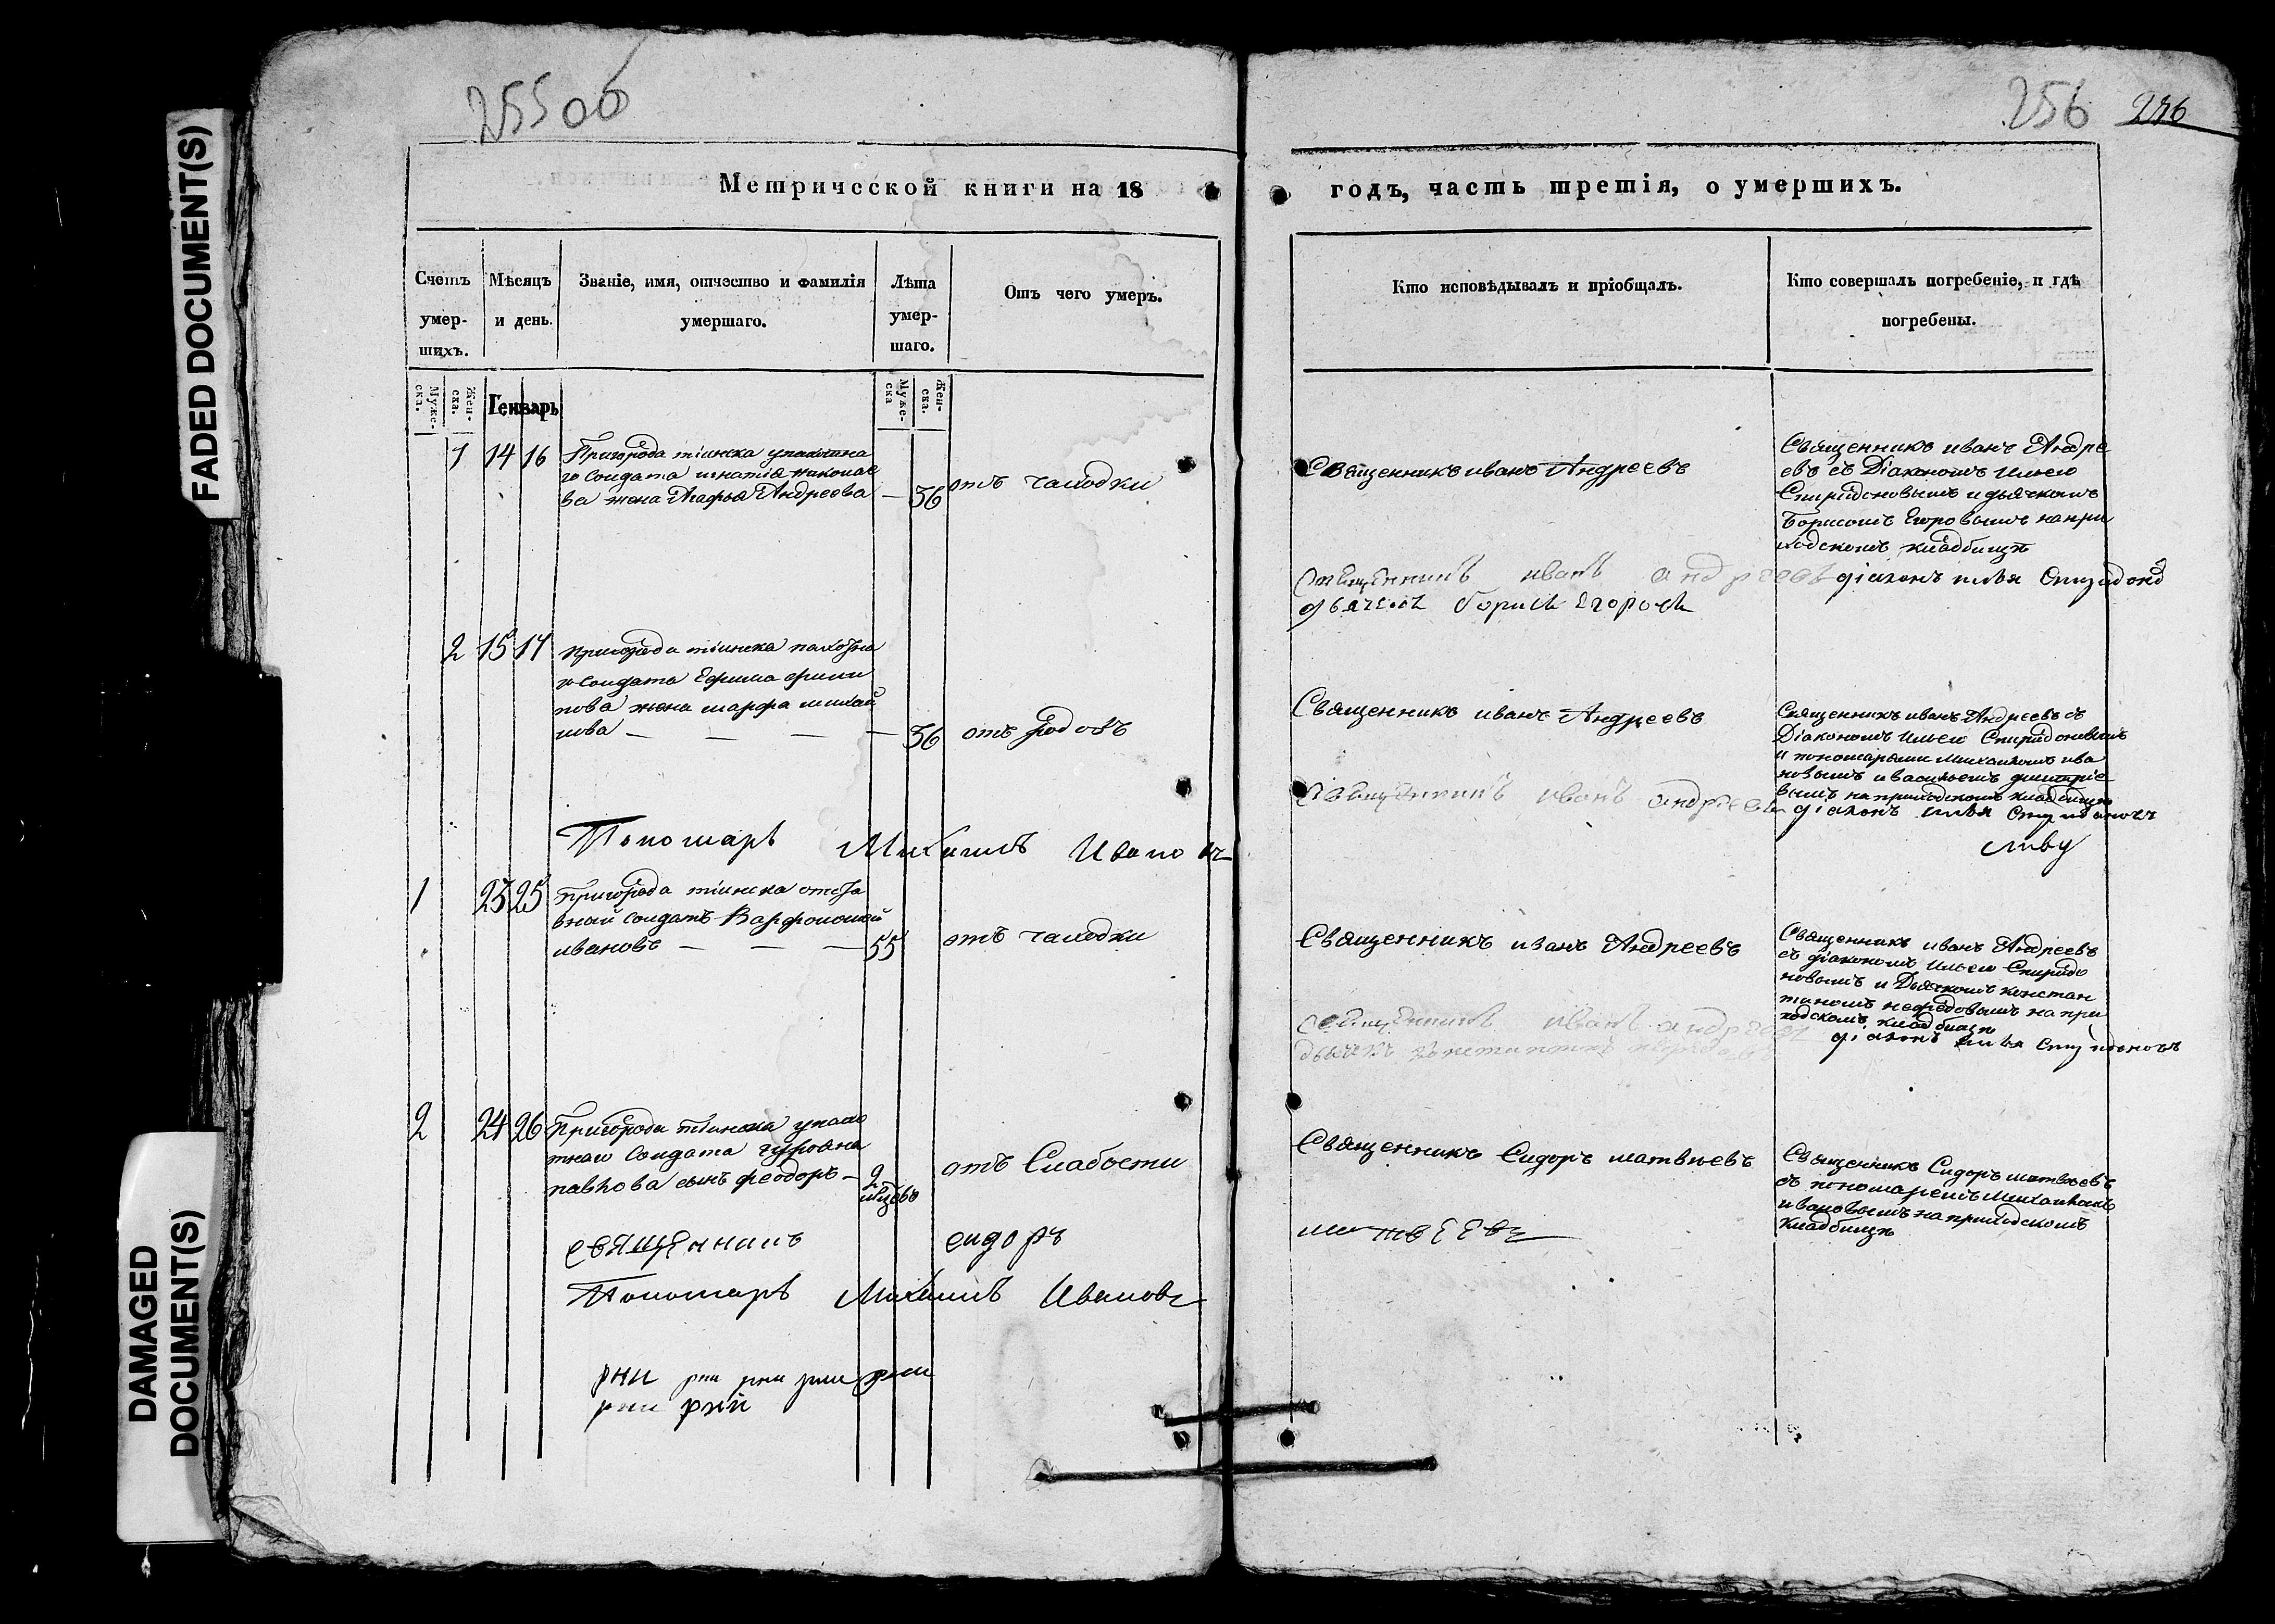 FADED DOCUMENT(S)
DAMAGED
DOCUMENT(S)
255 об
256 256
Метрической книги на 18
годъ, часть третія, о умершихъ.
Счетъ умер-шихъ.
Мѣсяцъ и день.
Званіе, имя, отчество и фамилія умершаго.
Лѣта умер-шаго.
Отъ чего умеръ.
Кто исповѣдывалъ и пріобщалъ.
Кто совершалъ погребеніе, и гдѣ погребены.
Муже-ска.
Жен-ска.
Генварь
Муже-ска
Жен-ска.
1 14 16
Пригорода тіинска
го Солдата игнатія николае
ва жена Агафья Андреева — 36
отъ чаходки
Священникъ иванъ Андреевъ
Священникъ иванъ Андре
евъ съ Діакономъ Ильею
Спиридоновымъ и дьячкомъ
Борисомъ Егоровымъ на при
ходскомъ кладбищѣ
Священникъ иванъ андреевъ діаконъ илья
дьячокъ борисъ егоровъ
2 15 17
пригорода тіинска пахотна
го Солдата Ефима филип
пова жена марфа михай
лова — — — — 36
отъ родовъ
Священникъ иванъ Андреевъ
Священникъ иванъ Андреевъ съ
Діакономъ Ильею Спиридоновымъ
и пономарями Михаиломъ ива
новымъ и васильемъ димитріе
вымъ на приходскомъ кладбищѣ
Священникъ иванъ андреевъ діаконъ илья Спиридоновъ
Пономарь Михаилъ Ивановъ
1 23 25
пригорода тіинска отста
вный солдатъ Варфоломей
ивановъ — — — 55
отъ чаходки
Священникъ иванъ Андреевъ
Священникъ иванъ Андреевъ
съ діакономъ Ильею Спиридо
новымъ и Дьячкомъ констан
тиномъ на при
ходскомъ кладбищѣ
священникъ иванъ андреевъ
діаконъ илья Спиридоновъ
дьячекъ константинъ
2 24 26
Пригорода тіинска
Солдата
павлова сынъ феодоръ — 2
отъ Слабости
Священникъ Сидоръ матвѣевъ
Священникъ Сидоръ матвѣевъ
съ пономаремъ Михаиломъ
ивановымъ на приходскомъ
кладбищѣ
священникъ сидоръ матвеевъ
Пономарь Михаилъ Ивановъ